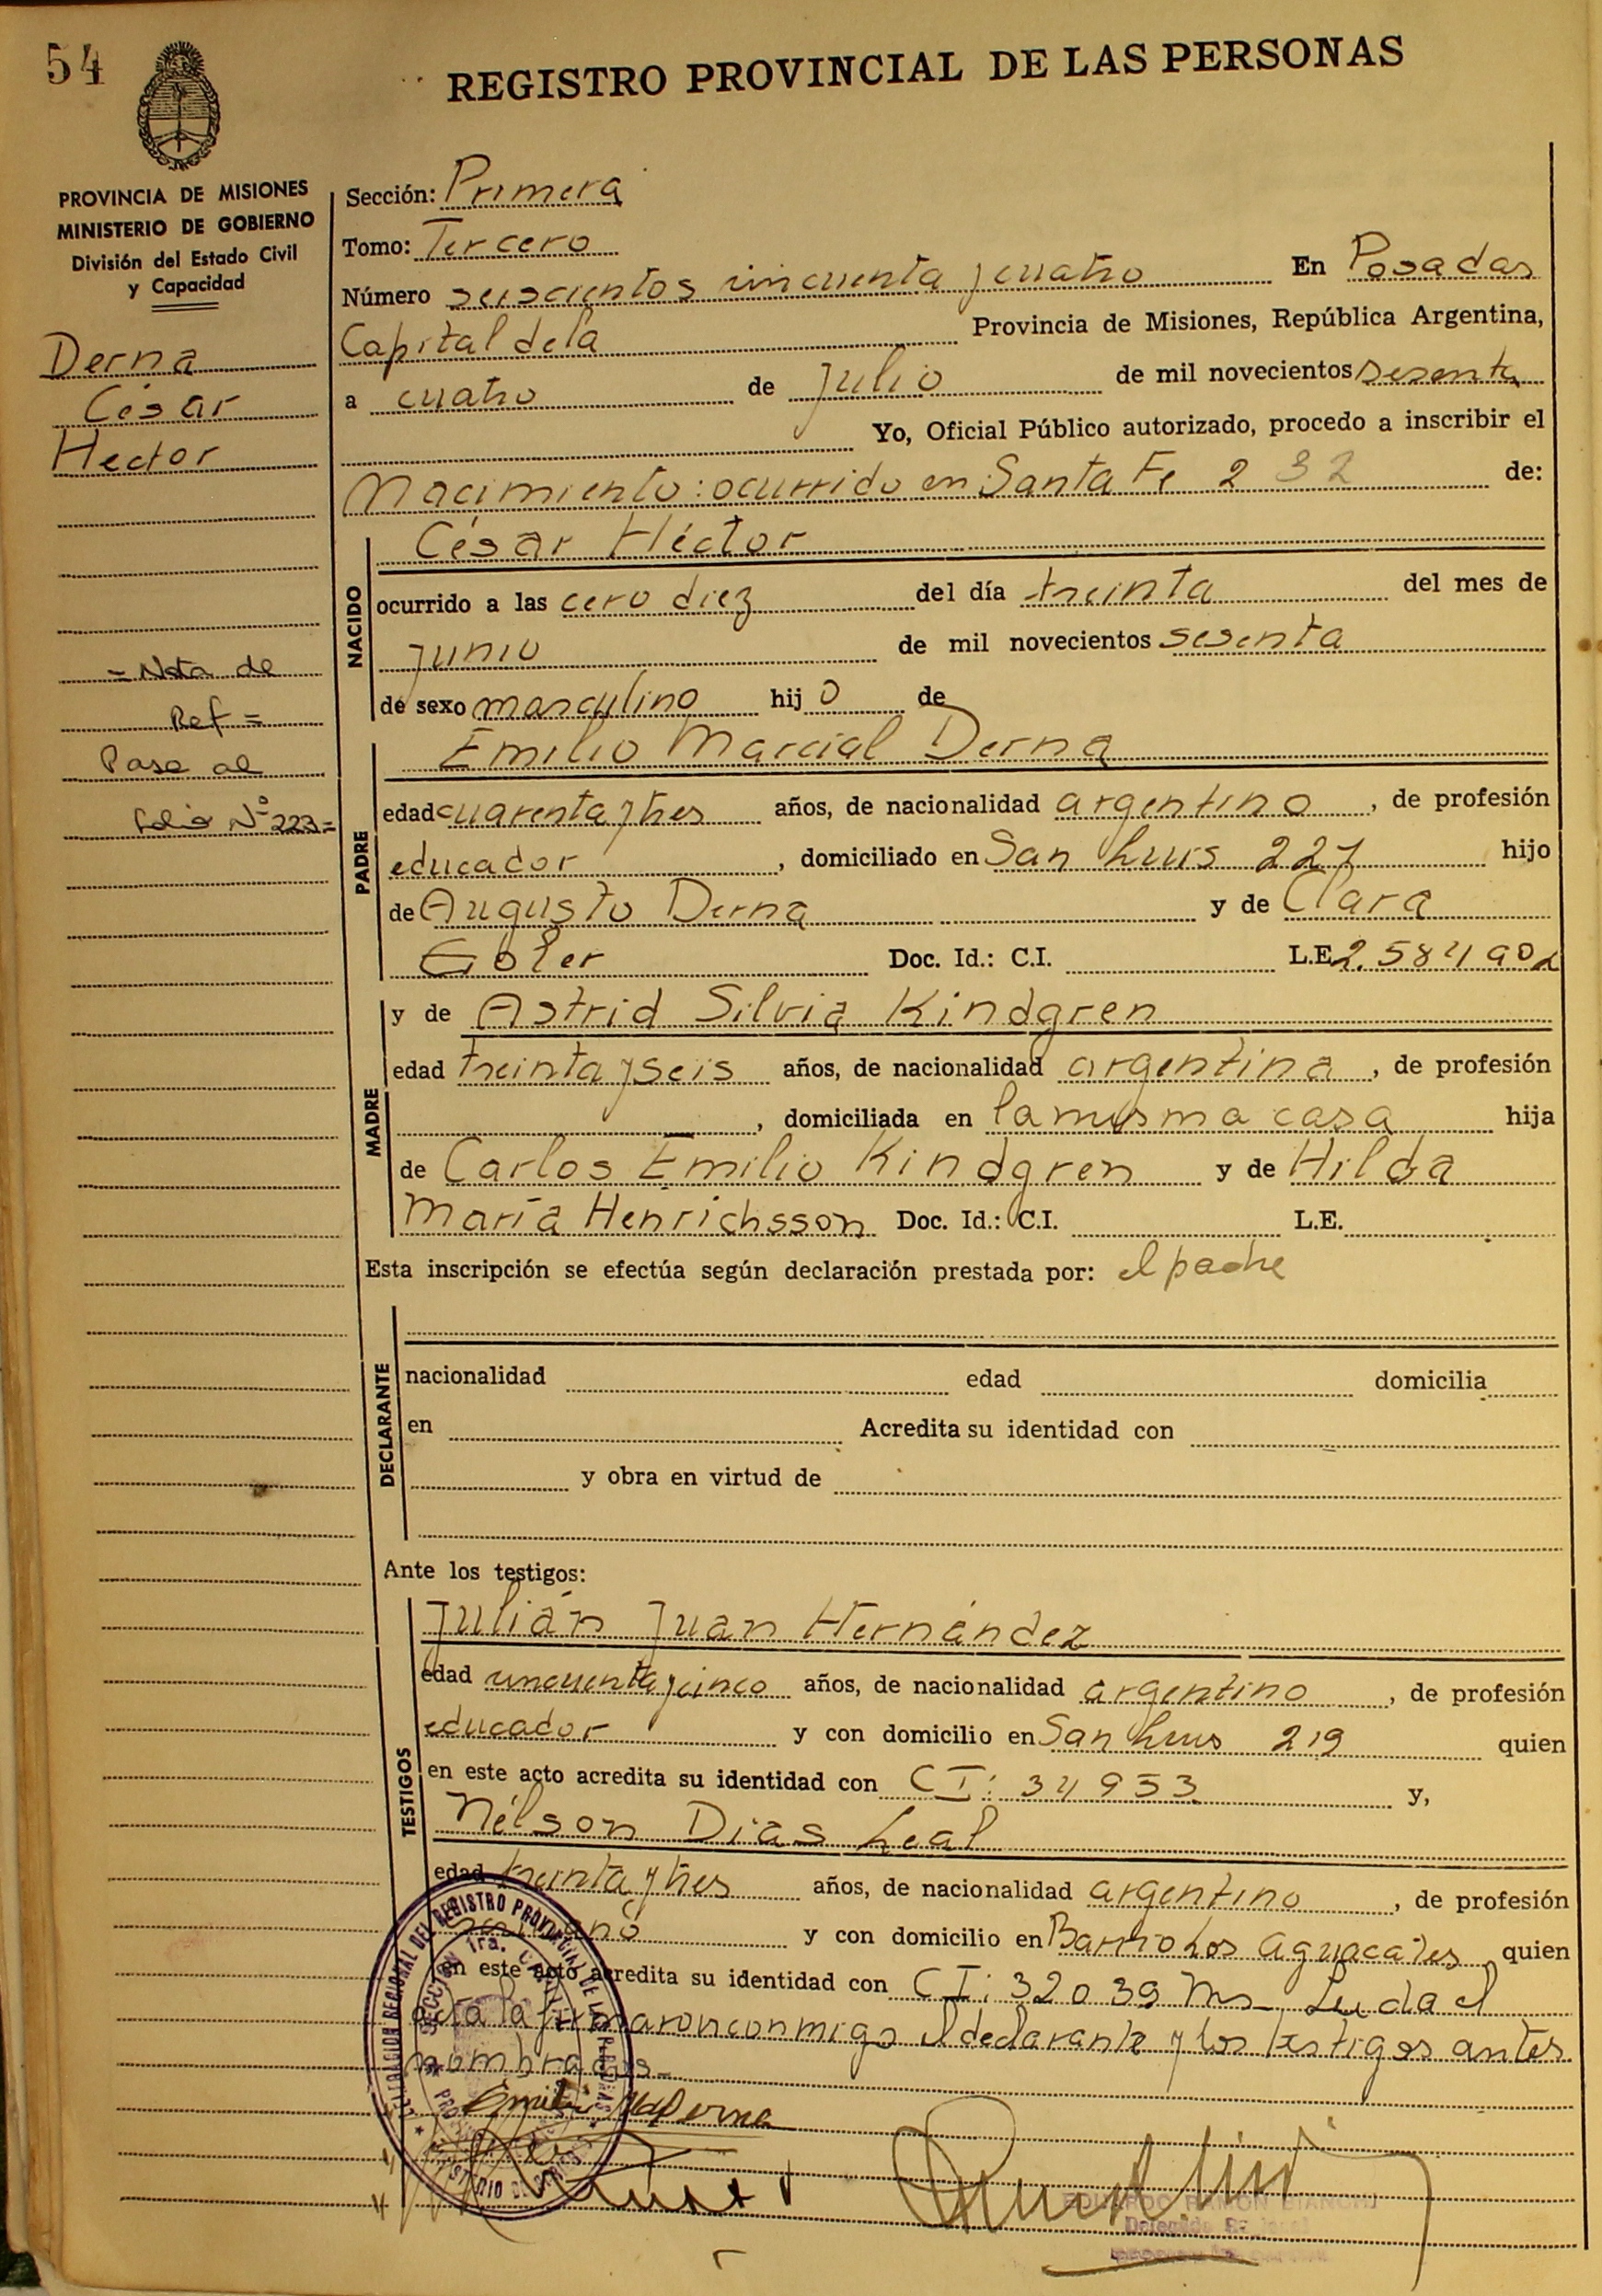 54
REGISTRO PROVINCIAL DE LAS PERSONAS
PROVINCIA DE MISIONES
MINISTERIO DE GOBIERNO
División del Estado Civil
y Capacidad
Derna
César
Hector
= Nota de
Ref =
Pase al
folio Nº 223=
Sección: Primera
Tomo: Tercero
Número seiscientos cincuenta y cuatro En Posadas
Capital de la Provincia de Misiones, República Argentina,
a cuatro de Julio de mil novecientos sesenta
Yo, Oficial Público autorizado, procedo a inscribir el
Nacimiento: ocurrido en Santa Fe 232 de:
NACIDO
César Héctor
ocurrido a las cero diez del día treinta del mes de
junio de mil novecientos sesenta
de sexo masculino hijo de
PADRE
Emilio Marcial Derna
edad cuarenta y tres años, de nacionalidad argentino, de profesión
educador, domiciliado en San Luis 227 hijo
de Augusto Derna y de Clara
Doc. Id.: C.I. L.E.
MADRE
y de Astrid Silvia Kindgren
edad treinta y seis años, de nacionalidad argentina, de profesión
, domiciliada en la misma casa hija
de Carlos Emilio Kindgren y de Hilda
María Henrichsson Doc. Id.: C.I. L.E.
Esta inscripción se efectúa según declaración prestada por: el padre
DECLARANTE
nacionalidad edad domicilia
en Acredita su identidad con
y obra en virtud de
Ante los testigos:
TESTIGOS
Julián Juan Hernández
edad cincuenta y cinco años, de nacionalidad argentino, de profesión
educador y con domicilio en San Luis 219 quien
en este acto acredita su identidad con CI: 34953 y,
Nélson Dias Leal
edad treinta y tres años, de nacionalidad argentino, de profesión
y con domicilio en Barrio Los Aguacates quien
en este acto acredita su identidad con CI: 32039 Ms_ Leida el
acta la firmaron conmigo el declarante y los testigos antes
nombrados_
Emilio M Derna
DELEGACION REGIONAL DEL REGISTRO PROVINCIAL DE LAS PERSONAS
SECCION 1ra.
EDUARDO RAMON BIANCHI